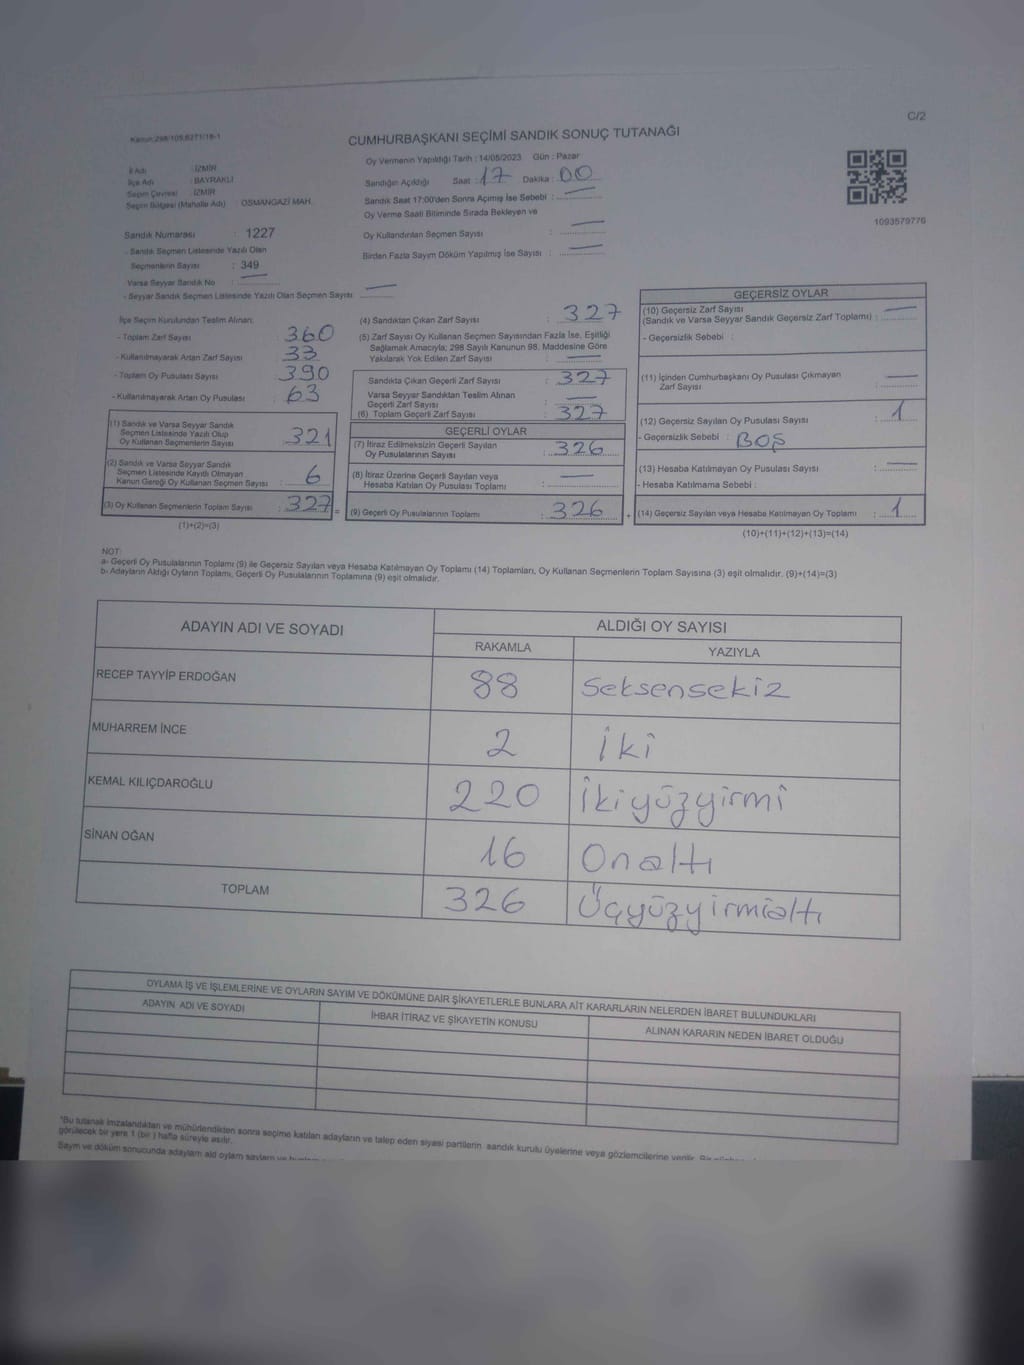 C/2
Kanun:298/105,6271/18-1
CUMHURBAŞKANI SEÇİMİ SANDIK SONUÇ TUTANAĞI
İl Adı : İZMİR
İlçe Adı : BAYRAKLI
Seçim Çevresi : İZMİR
Seçim Bölgesi (Mahalle Adı) OSMANGAZİ MAH.
Sandık Numarası : 1227
- Sandık Seçmen Listesinde Yazılı Olan
Seçmenlerin Sayısı : 349
Varsa Seyyar Sandık No :
- Seyyar Sandık Seçmen Listesinde Yazılı Olan Seçmen Sayısı
Oy Vermenin Yapıldığı Tarih : 14/05/2023 Gün : Pazar
Sandığın Açıldığı Saat : 17 Dakika : 00
Sandık Saat 17:00'den Sonra Açımış İse Sebebi :
Oy Verme Saati Bitiminde Sırada Bekleyen ve
Oy Kullandırılan Seçmen Sayısı :
Birden Fazla Sayım Döküm Yapılmış İse Sayısı :
1093579776
İlçe Seçim Kurulundan Teslim Alınan:
- Toplam Zarf Sayısı : 360
- Kullanılmayarak Artan Zarf Sayısı 33
- Toplam Oy Pusulası Sayısı : 390
- Kullanılmayarak Artan Oy Pusulası : 63
(1) Sandık ve Varsa Seyyar Sandık
Seçmen Listesinde Yazılı Olup
Oy Kullanan Seçmenlerin Sayısı 321
(2) Sandık ve Varsa Seyyar Sandık
Seçmen Listesinde Kayıtlı Olmayan
Kanun Gereği Oy Kullanan Seçmen Sayısı : 6
(3) Oy Kullanan Seçmenlerin Toplam Sayısı : 327 =
(1)+(2)=(3)
(4) Sandıktan Çıkan Zarf Sayısı : 327
(5) Zarf Sayısı Oy Kullanan Seçmen Sayısından Fazla İse, Eşitliği
Sağlamak Amacıyla; 298 Sayılı Kanunun 98. Maddesine Göre
Yakılarak Yok Edilen Zarf Sayısı :
Sandıkta Çıkan Geçerli Zarf Sayısı : 327
Varsa Seyyar Sandıktan Teslim Alınan
Geçerli Zarf Sayısı :
(6) Toplam Geçerli Zarf Sayısı : 327
GEÇERLİ OYLAR
(7) İtiraz Edilmeksizin Geçerli Sayılan
Oy Pusulalarının Sayısı : 326
(8) İtiraz Üzerine Geçerli Sayılan veya
Hesaba Katılan Oy Pusulası Toplamı :
(9) Geçerli Oy Pusulalarının Toplamı : 326 +
GEÇERSİZ OYLAR
(10) Geçersiz Zarf Sayısı
(Sandık ve Varsa Seyyar Sandık Geçersiz Zarf Toplamı) :
- Geçersizlik Sebebi :
(11) İçinden Cumhurbaşkanı Oy Pusulası Çıkmayan
Zarf Sayısı :
(12) Geçersiz Sayılan Oy Pusulası Sayısı : 1
- Geçersizlik Sebebi : BOŞ
(13) Hesaba Katılmayan Oy Pusulası Sayısı :
- Hesaba Katılmama Sebebi :
(14) Geçersiz Sayılan veya Hesaba Katılmayan Oy Toplamı : 1
(10)+(11)+(12)+(13)=(14)
NOT:
a- Geçerli Oy Pusulalarının Toplamı (9) ile Geçersiz Sayılan veya Hesaba Katılmayan Oy Toplamı (14) Toplamları, Oy Kullanan Seçmenlerin Toplam Sayısına (3) eşit olmalıdır. (9)+(14)=(3)
b- Adayların Aldığı Oyların Toplamı, Geçerli Oy Pusulalarının Toplamına (9) eşit olmalıdır.
ADAYIN ADI VE SOYADI ALDIĞI OY SAYISI
RAKAMLA YAZIYLA
RECEP TAYYİP ERDOĞAN 88 Seksensekiz
MUHARREM İNCE 2 İki
KEMAL KILIÇDAROĞLU 220 İkiyüzyirmi
SİNAN OĞAN 16 Onaltı
TOPLAM 326 Üçyüzyirmialtı
OYLAMA İŞ VE İŞLEMLERİNE VE OYLARIN SAYIM VE DÖKÜMÜNE DAİR ŞİKAYETLERLE BUNLARA AİT KARARLARIN NELERDEN İBARET BULUNDUKLARI
ADAYIN ADI VE SOYADI İHBAR İTİRAZ VE ŞİKAYETİN KONUSU ALINAN KARARIN NEDEN İBARET OLDUĞU
"Bu tutanak imzalandıktan ve mühürlendikten sonra seçime katılan adayların ve talep eden siyasi partilerin sandık kurulu üyelerine veya gözlemcilerine verilir. Bir
görülecek bir yere 1 (bir) hafta süreyle asılır.
Sayım ve döküm sonucunda